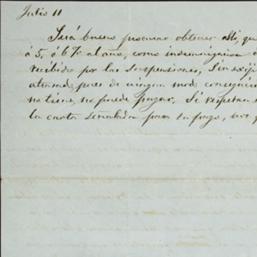 Julio 11
Será bueno procurar obtener
á 5, ó 6% al año, como indemnizacion
recibidos por las suspensiones, Sin
atencion, pues de ningun modo
no tiene, no puede pagar, Si respetan
la cuota señalada para su pago,